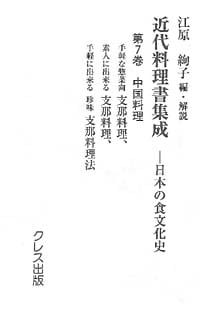 江原 絢子 編・解説
近代料理書集成
―日本の食文化史
第7巻 中国料理
手軽な惣菜向 支那料理、
素人に出来る 支那料理、
手軽に出来る 珍味 支那料理法
クレス出版